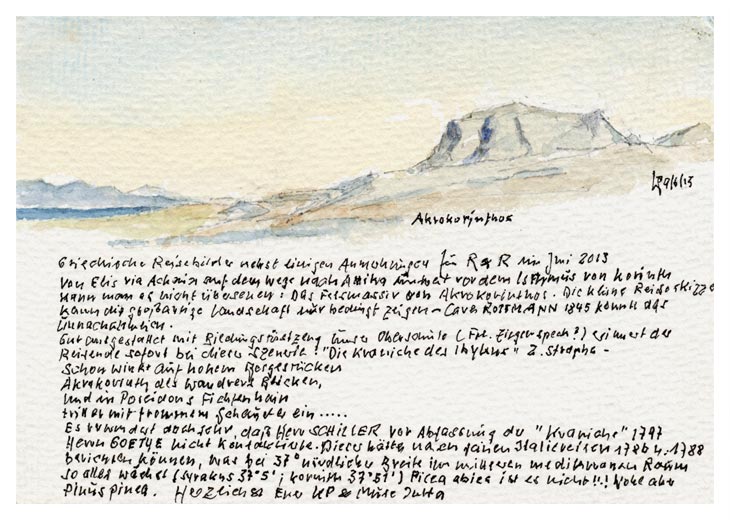 9/6/13
Akrokorinthos
Griechische Reisebilder nebst einigen Anmerkungen für R & R im Juni 2013
Von Elis via Achaia auf dem Wege nach Attika vor dem Isthmus von Korinth
kann man es nicht übersehen: Das Felsmassiv von Akrokorinthos. Die kleine Reiseskizze
kann die großartige Landschaft nur bedingt zeigen – ROTTMANN 1845 konnte das
unnachahmlich.
Gut ausgestattet mit unser Oberschule (Frl. Ziegenspeck?) erinnert der
Reisende sofort bei dieser Szenerie: "Die Kraniche des Ibykus" 2. Strophe –
Schon winkt auf hohem Bergesrücken
Akrokorinth des Wandrers Blicken,
Und in Poseidons Fichtenhain
tritt er mit frommem Schauder ein .....
Es doch sehr, daß Herr SCHILLER vor Abfassung der "Kraniche" 1797
Herrn GOETHE nicht Dieser hätte nach seinen Italienreisen 1786 u. 1788
berichten können, was bei 37° nördlicher Breite im mediterranen Raum
so alles wächst (Syrakus 37°5'; Korinth 37°51') Picea abies ist es nicht!!! Wohl aber
Pinus pinea. Herzlichst Euer KP & Jutta